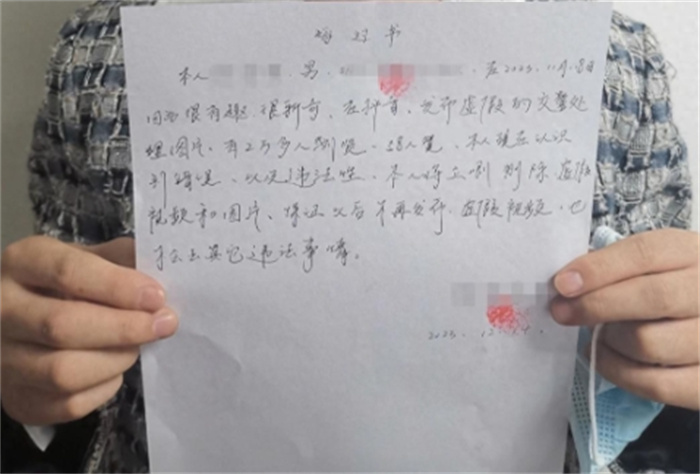 悔过书
本人 男, 在2023.11月8日
因为很有趣,很新奇,在抖音,发布虚假的交警处
理图片,有2万多人浏览,38人赞,本人现在认识
到错误,以及违法性,本人将立刻删除虚假
视频和图片,保证以后不再发布,虚假视频,也
不会去其它违法事情。
2023. 12.